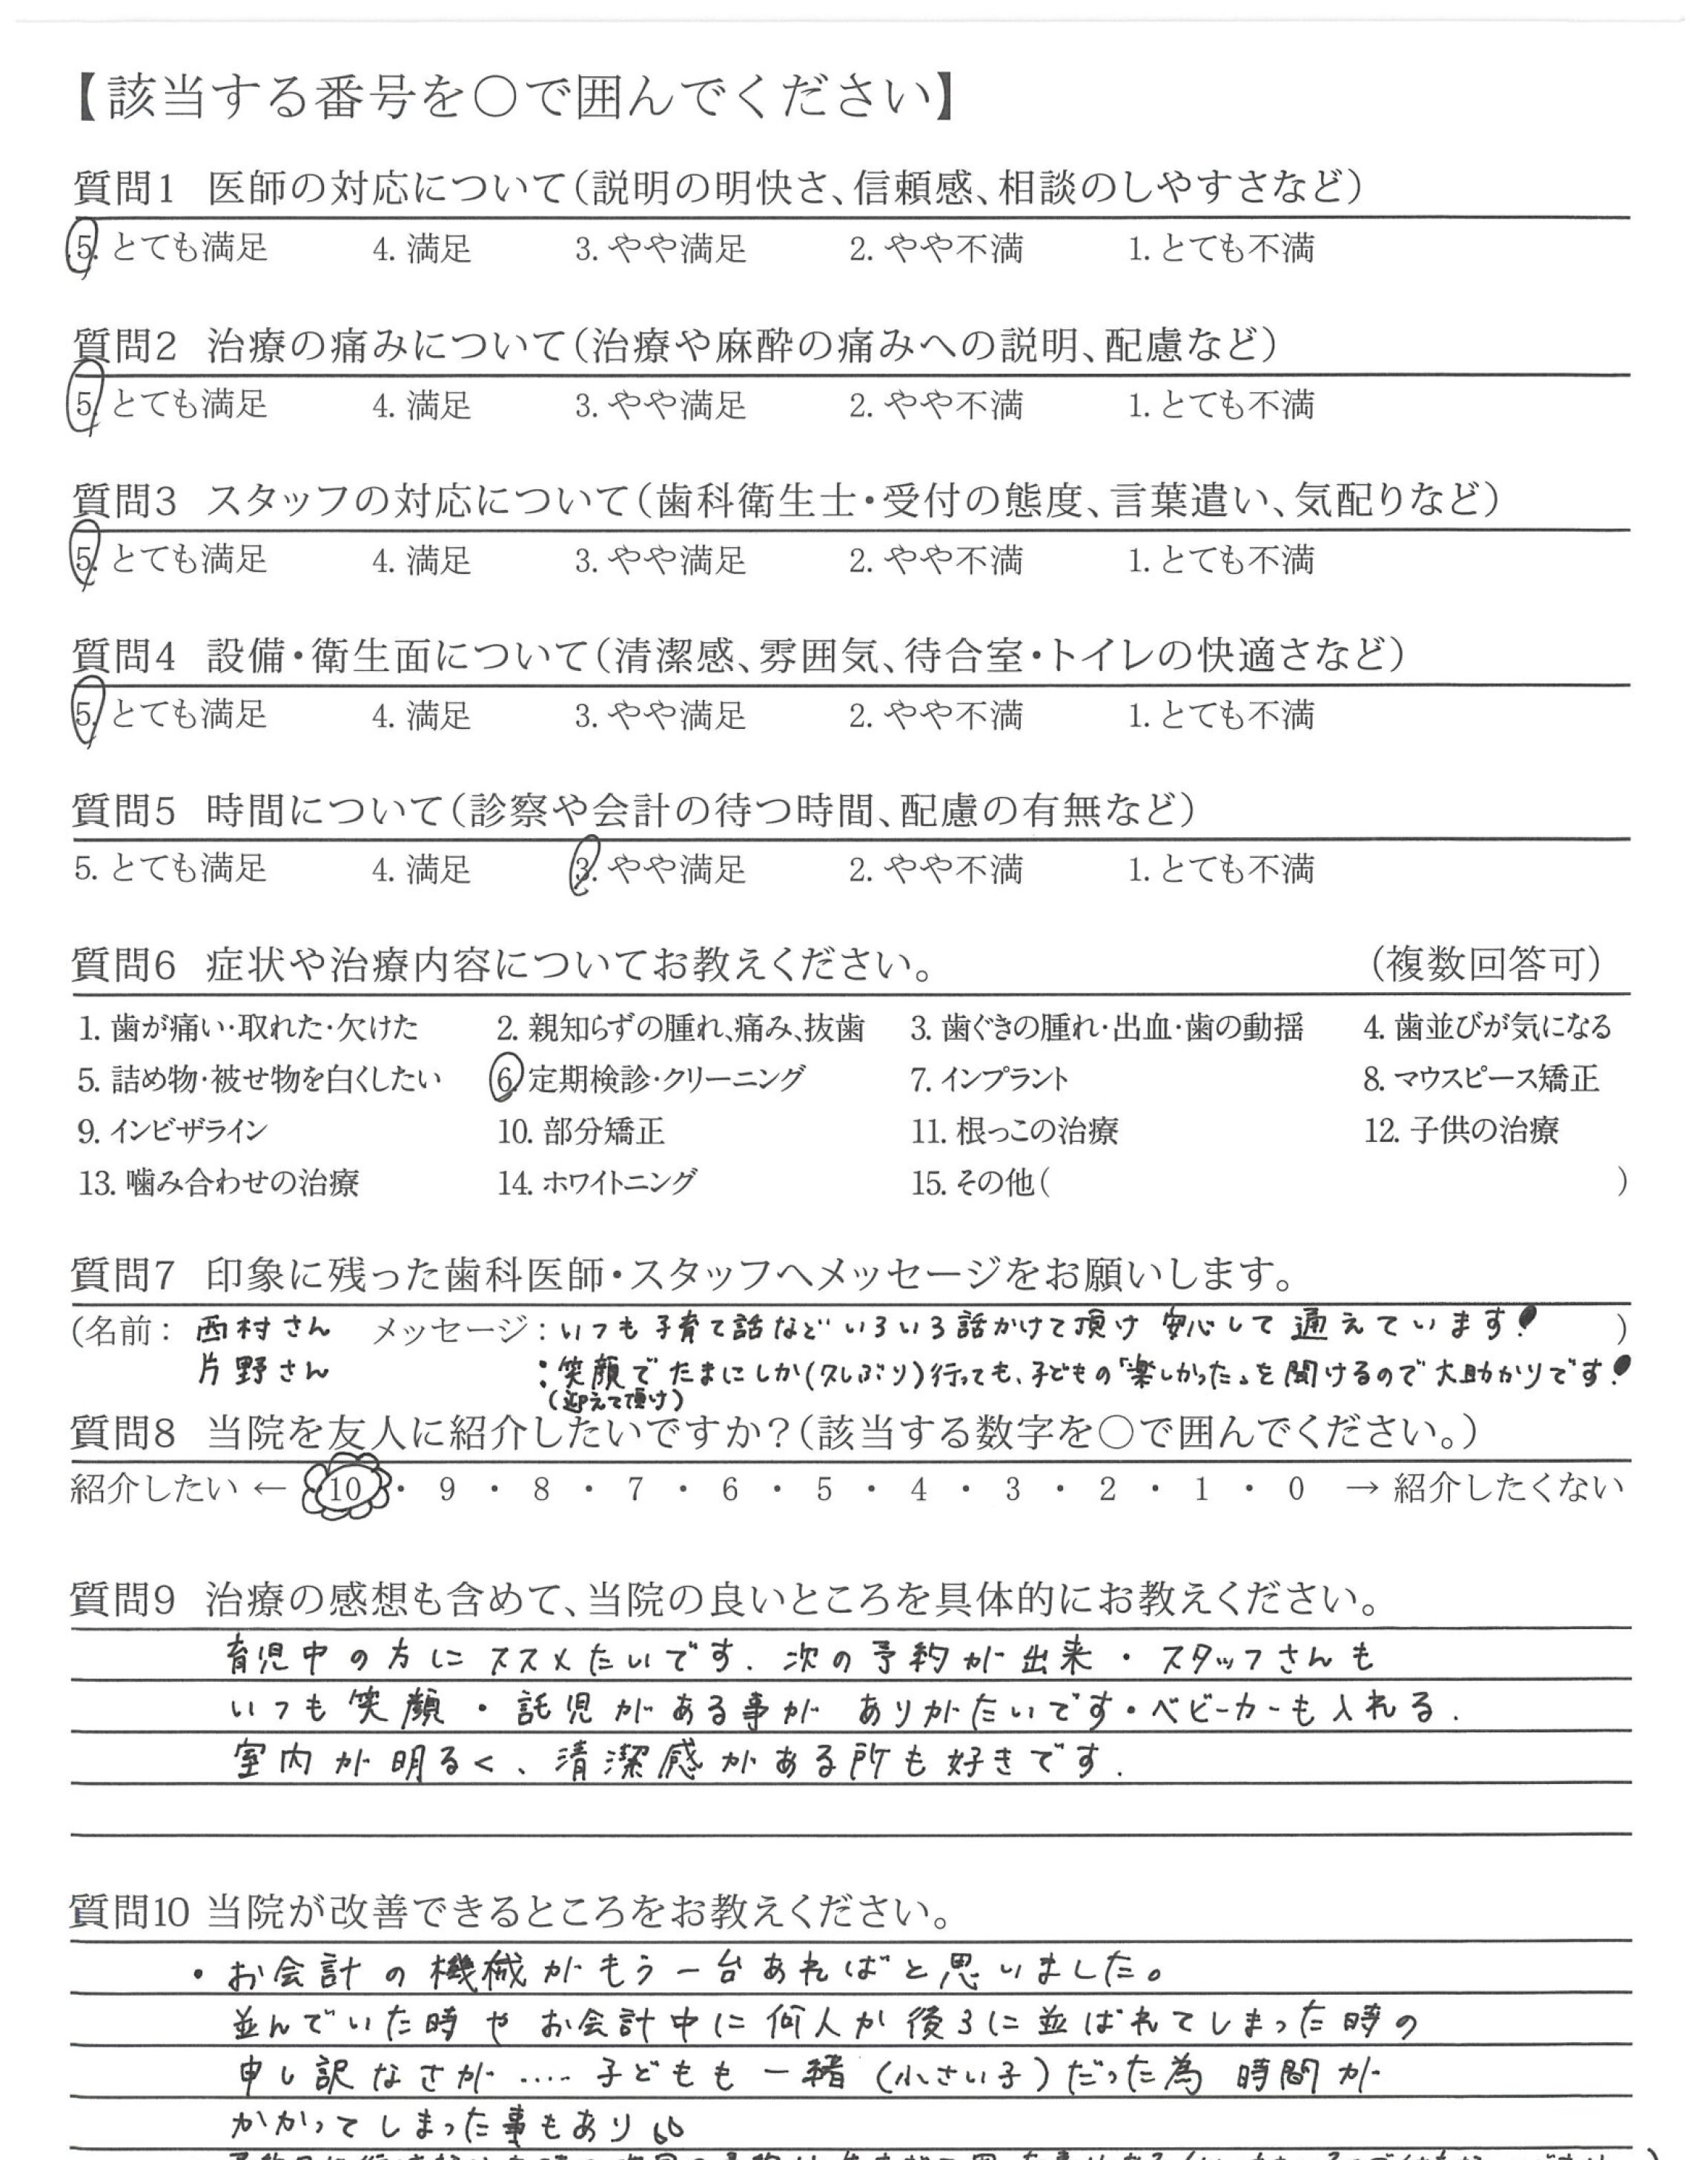 【該当する番号を〇で囲んでください】
質問1 医師の対応について（説明の明快さ、信頼感、相談のしやすさなど）
5. とても満足 4. 満足 3. やや満足 2. やや不満 1. とても不満
質問2 治療の痛みについて（治療や麻酔の痛みへの説明、配慮など）
5. とても満足 4. 満足 3. やや満足 2. やや不満 1. とても不満
質問3 スタッフの対応について（歯科衛生士・受付の態度、言葉遣い、気配りなど）
5. とても満足 4. 満足 3. やや満足 2. やや不満 1. とても不満
質問4 設備・衛生面について（清潔感、雰囲気、待合室・トイレの快適さなど）
5. とても満足 4. 満足 3. やや満足 2. やや不満 1. とても不満
質問5 時間について（診察や会計の待つ時間、配慮の有無など）
5. とても満足 4. 満足 3. やや満足 2. やや不満 1. とても不満
質問6 症状や治療内容についてお教えください。 （複数回答可）
1. 歯が痛い・取れた・欠けた 2. 親知らずの腫れ、痛み、抜歯 3. 歯ぐきの腫れ・出血・歯の動揺 4. 歯並びが気になる
5. 詰め物・被せ物を白くしたい 6. 定期検診・クリーニング 7. インプラント 8. マウスピース矯正
9. インビザライン 10. 部分矯正 11. 根っこの治療 12. 子供の治療
13. 噛み合わせの治療 14. ホワイトニング 15. その他（ ）
質問7 印象に残った歯科医師・スタッフへメッセージをお願いします。
（名前： 西村さん メッセージ：いつも子育て話などいろいろ話かけて頂け 安心して通えています！ ）
片野さん ：笑顔で たまにしか（久しぶり）行っても、子どもの「楽しかった」を聞けるので大助かりです！
（迎えて頂け）
質問8 当院を友人に紹介したいですか？（該当する数字を〇で囲んでください。）
紹介したい ← 10 ・ 9 ・ 8 ・ 7 ・ 6 ・ 5 ・ 4 ・ 3 ・ 2 ・ 1 ・ 0 → 紹介したくない
質問9 治療の感想も含めて、当院の良いところを具体的にお教えください。
育児中の方にススメたいです. 次の予約が出来・スタッフさんも
いつも笑顔・託児がある事が ありがたいです・ベビーカーも入れる.
室内が明るく、清潔感がある所も好きです.
質問10 当院が改善できるところをお教えください。
・お会計の機械がもう一台あればと思いました。
並んでいた時や お会計中に何人か後ろに並ばれてしまった時の
申し訳なさが ‥‥ 子どもも一緒（小さい子）だった為 時間が
かかってしまった事もあり